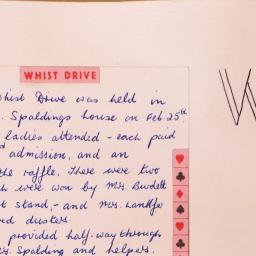 WHIST DRIVE
Whist Drive was held in
. Spaldings house on Feb. 25th.
ladies attended - each paid
admission, and an
the raffle. There were two
were won by Mrs. Burdett
t stand, - and Mrs.
dusters.
provided half-way through
Spalding and helpers.
W